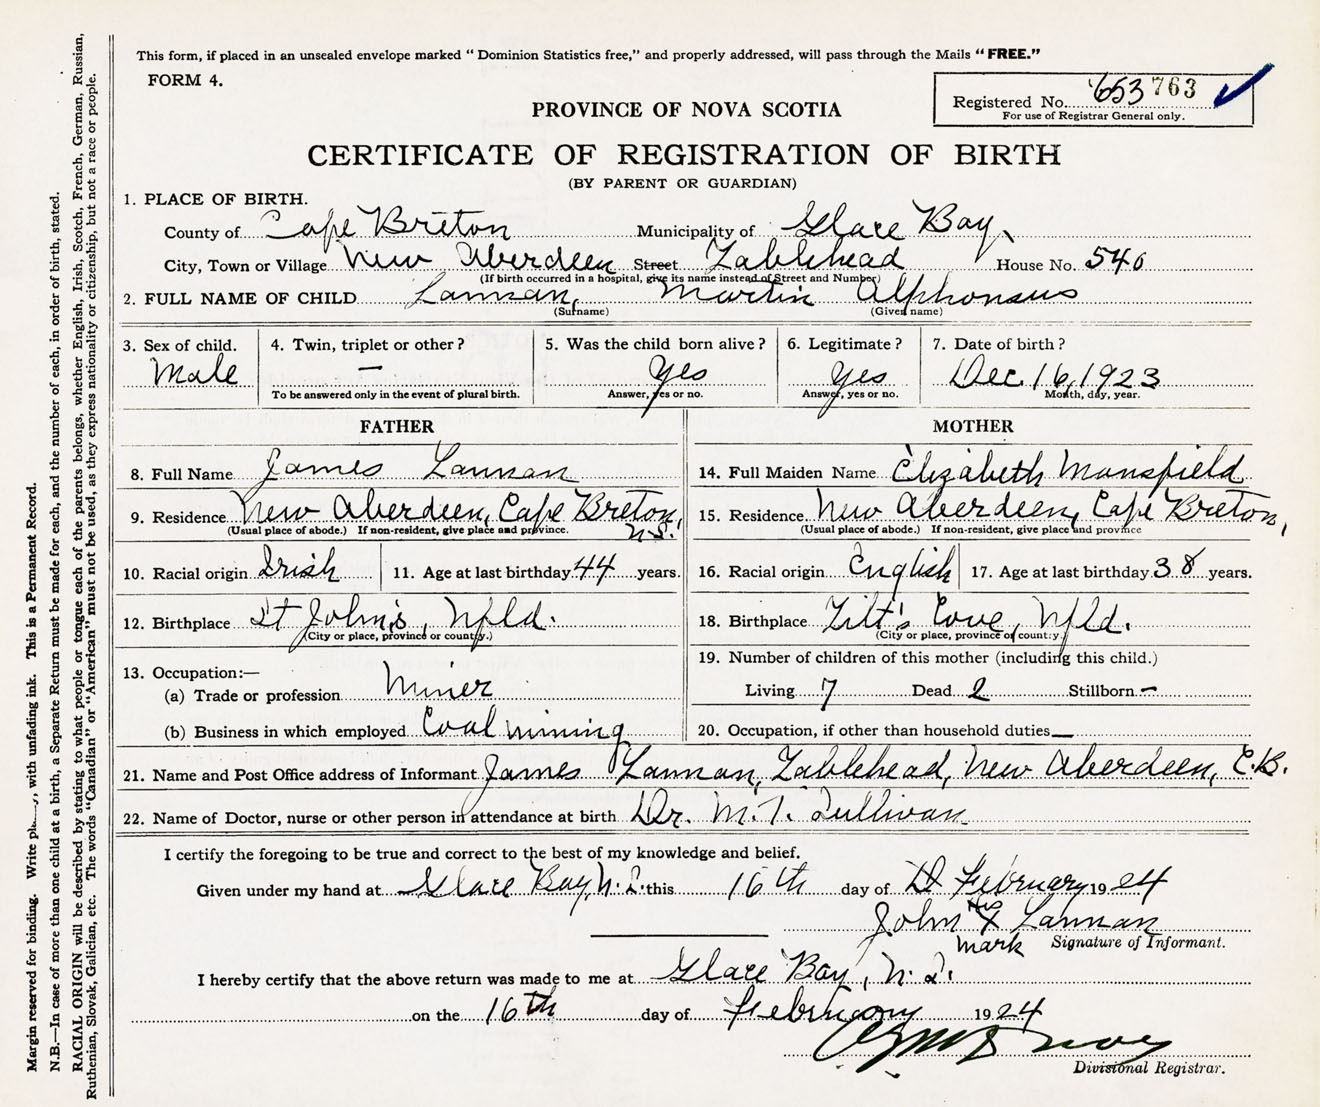 This form, if placed in an unsealed envelope marked "Dominion Statistics free," and properly addressed, will pass through the Mails "FREE."
FORM 4.
Registered No. 653763
For use of Registrar General only.
PROVINCE OF NOVA SCOTIA
CERTIFICATE OF REGISTRATION OF BIRTH
(BY PARENT OR GUARDIAN)
1. PLACE OF BIRTH.
County of Cape Breton Municipality of Glace Bay,
City, Town or Village New Aberdeen Street Tablehead House No. 540
(If birth occurred in a hospital, give its name instead of Street and Number)
2. FULL NAME OF CHILD Lannan, Martin Alphonsus
(Surname) (Given name)
3. Sex of child. 4. Twin, triplet or other? 5. Was the child born alive? 6. Legitimate? 7. Date of birth?
Male — Yes Yes Dec. 16, 1923
To be answered only in the event of plural birth. Answer, yes or no. Answer, yes or no. Month, day, year.
FATHER
8. Full Name James Lannan
9. Residence New Aberdeen, Cape Breton, N.S.
(Usual place of abode.) If non-resident, give place and province.
10. Racial origin Irish 11. Age at last birthday 44 years.
12. Birthplace St John's, Nfld.
(City or place, province or country.)
13. Occupation:—
(a) Trade or profession Miner
(b) Business in which employed Coal mining
MOTHER
14. Full Maiden Name Elizabeth Mansfield
15. Residence New Aberdeen, Cape Breton,
(Usual place of abode.) If non-resident, give place and province
16. Racial origin English 17. Age at last birthday 38 years.
18. Birthplace Tilt's Cove, Nfld.
(City or place, province or country.)
19. Number of children of this mother (including this child.)
Living 7 Dead 2 Stillborn —
20. Occupation, if other than household duties —
21. Name and Post Office address of Informant James Lannan, Tablehead, New Aberdeen, C.B.
22. Name of Doctor, nurse or other person in attendance at birth Dr. M. T. Sullivan
I certify the foregoing to be true and correct to the best of my knowledge and belief.
Given under my hand at Glace Bay, N.S. this 16th day of February 1924
his
John X Lannan
mark Signature of Informant.
I hereby certify that the above return was made to me at Glace Bay, N.S.
on the 16th day of February 1924
Divisional Registrar.
Margin reserved for binding. Write with unfading ink. This is a Permanent Record.
N.B.—In case of more than one child at a birth, a Separate Return must be made for each, and the number of each, in order of birth, stated.
RACIAL ORIGIN will be described by stating to what people or tongue each of the parents belongs, whether English, Irish, Scotch, French, German, Russian,
Ruthenian, Slovak, Galician, etc. The words "Canadian" or "American" must not be used, as they express nationality or citizenship, but not a race or people.